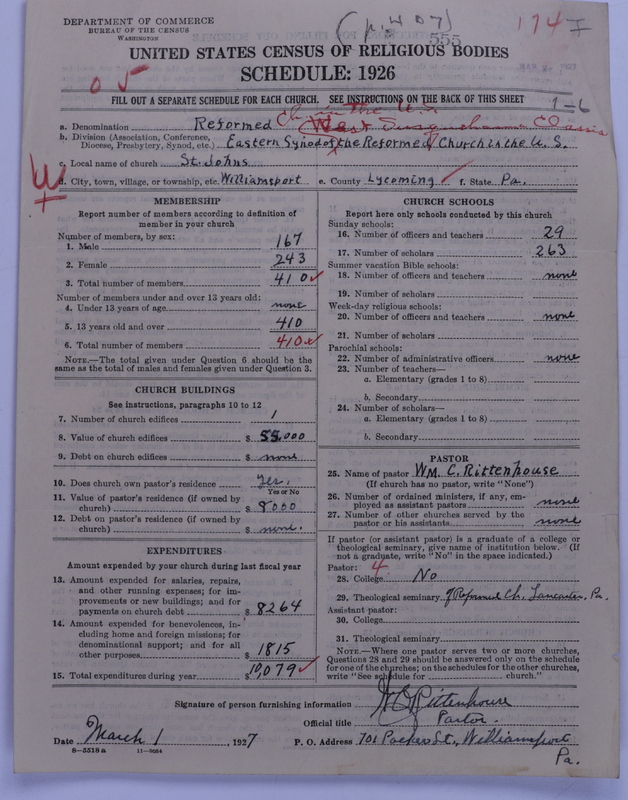 DEPARTMENT OF COMMERCE
BUREAU OF THE CENSUS
WASHINGTON
555
174 I
UNITED STATES CENSUS OF RELIGIOUS BODIES
SCHEDULE: 1926
05
FILL OUT A SEPARATE SCHEDULE FOR EACH CHURCH. SEE INSTRUCTIONS ON THE BACK OF THIS SHEET
1-6
a. Denomination Reformed Ch. in the U.S.
West Susquehanna Classis
b. Division (Association, Conference, Diocese, Presbytery, Synod, etc.) Eastern Synod of the Reformed Church in the U.S.
c. Local name of church St. Johns
d. City, town, village, or township, etc. Williamsport e. County Lycoming f. State Pa.
MEMBERSHIP
Report number of members according to definition of
member in your church
Number of members, by sex:
1. Male 167
2. Female 243
3. Total number of members 410
Number of members under and over 13 years old:
4. Under 13 years of age none
5. 13 years old and over 410
6. Total number of members 410
NOTE.—The total given under Question 6 should be
same as the total of males and females given under Question 3.
CHURCH BUILDINGS
See instructions, paragraphs 10 to 12
7. Number of church edifices 1
8. Value of church edifices $ 55,000
9. Debt on church edifices $ none
10. Does church own pastor's residence Yes.
Yes or No
11. Value of pastor's residence (if owned by
church) $ 8000
12. Debt on pastor's residence (if owned by
church) $ none.
EXPENDITURES
Amount expended by your church during last fiscal year
13. Amount expended for salaries, repairs,
and other running expenses; for im-
provements or new buildings; and for
payments on church debt $ 8264
14. Amount expended for benevolences, in-
cluding home and foreign missions; for
denominational support; and for all
other purposes $ 1815
15. Total expenditures during year $ 10,079
CHURCH SCHOOLS
Report here only schools conducted by this church
Sunday schools:
16. Number of officers and teachers 29
17. Number of scholars 263
Summer vacation Bible schools:
18. Number of officers and teachers none
19. Number of scholars
Week-day religious schools:
20. Number of officers and teachers none
21. Number of scholars
Parochial schools:
22. Number of administrative officers none
23. Number of teachers—
a. Elementary (grades 1 to 8)
b. Secondary
24. Number of scholars—
a. Elementary (grades 1 to 8)
b. Secondary
PASTOR
25. Name of pastor WM. C. Rittenhouse
(If church has no pastor, write "None")
26. Number of ordained ministers, if any, em-
ployed as assistant pastors none
27. Number of other churches served by the
pastor or his assistants none
If pastor (or assistant pastor) is a graduate of a college or
theological seminary, give name of institution below. (If
not a graduate, write "No" in the space indicated.)
Pastor: 4
28. College No
29. Theological seminary of Reformed Ch. Lancaster, Pa.
Assistant pastor:
30. College
31. Theological seminary
NOTE.—Where one pastor serves two or more churches,
Questions 28 and 29 should be answered only on the schedule
for one of the churches; on the schedules for the other churches,
write "See schedule for church."
Signature of person furnishing information W C Rittenhouse
Official title Pastor.
Date March 1, 1927 P. O. Address 701 Packer St., Williamsport
Pa.
8-5518a 11-8684